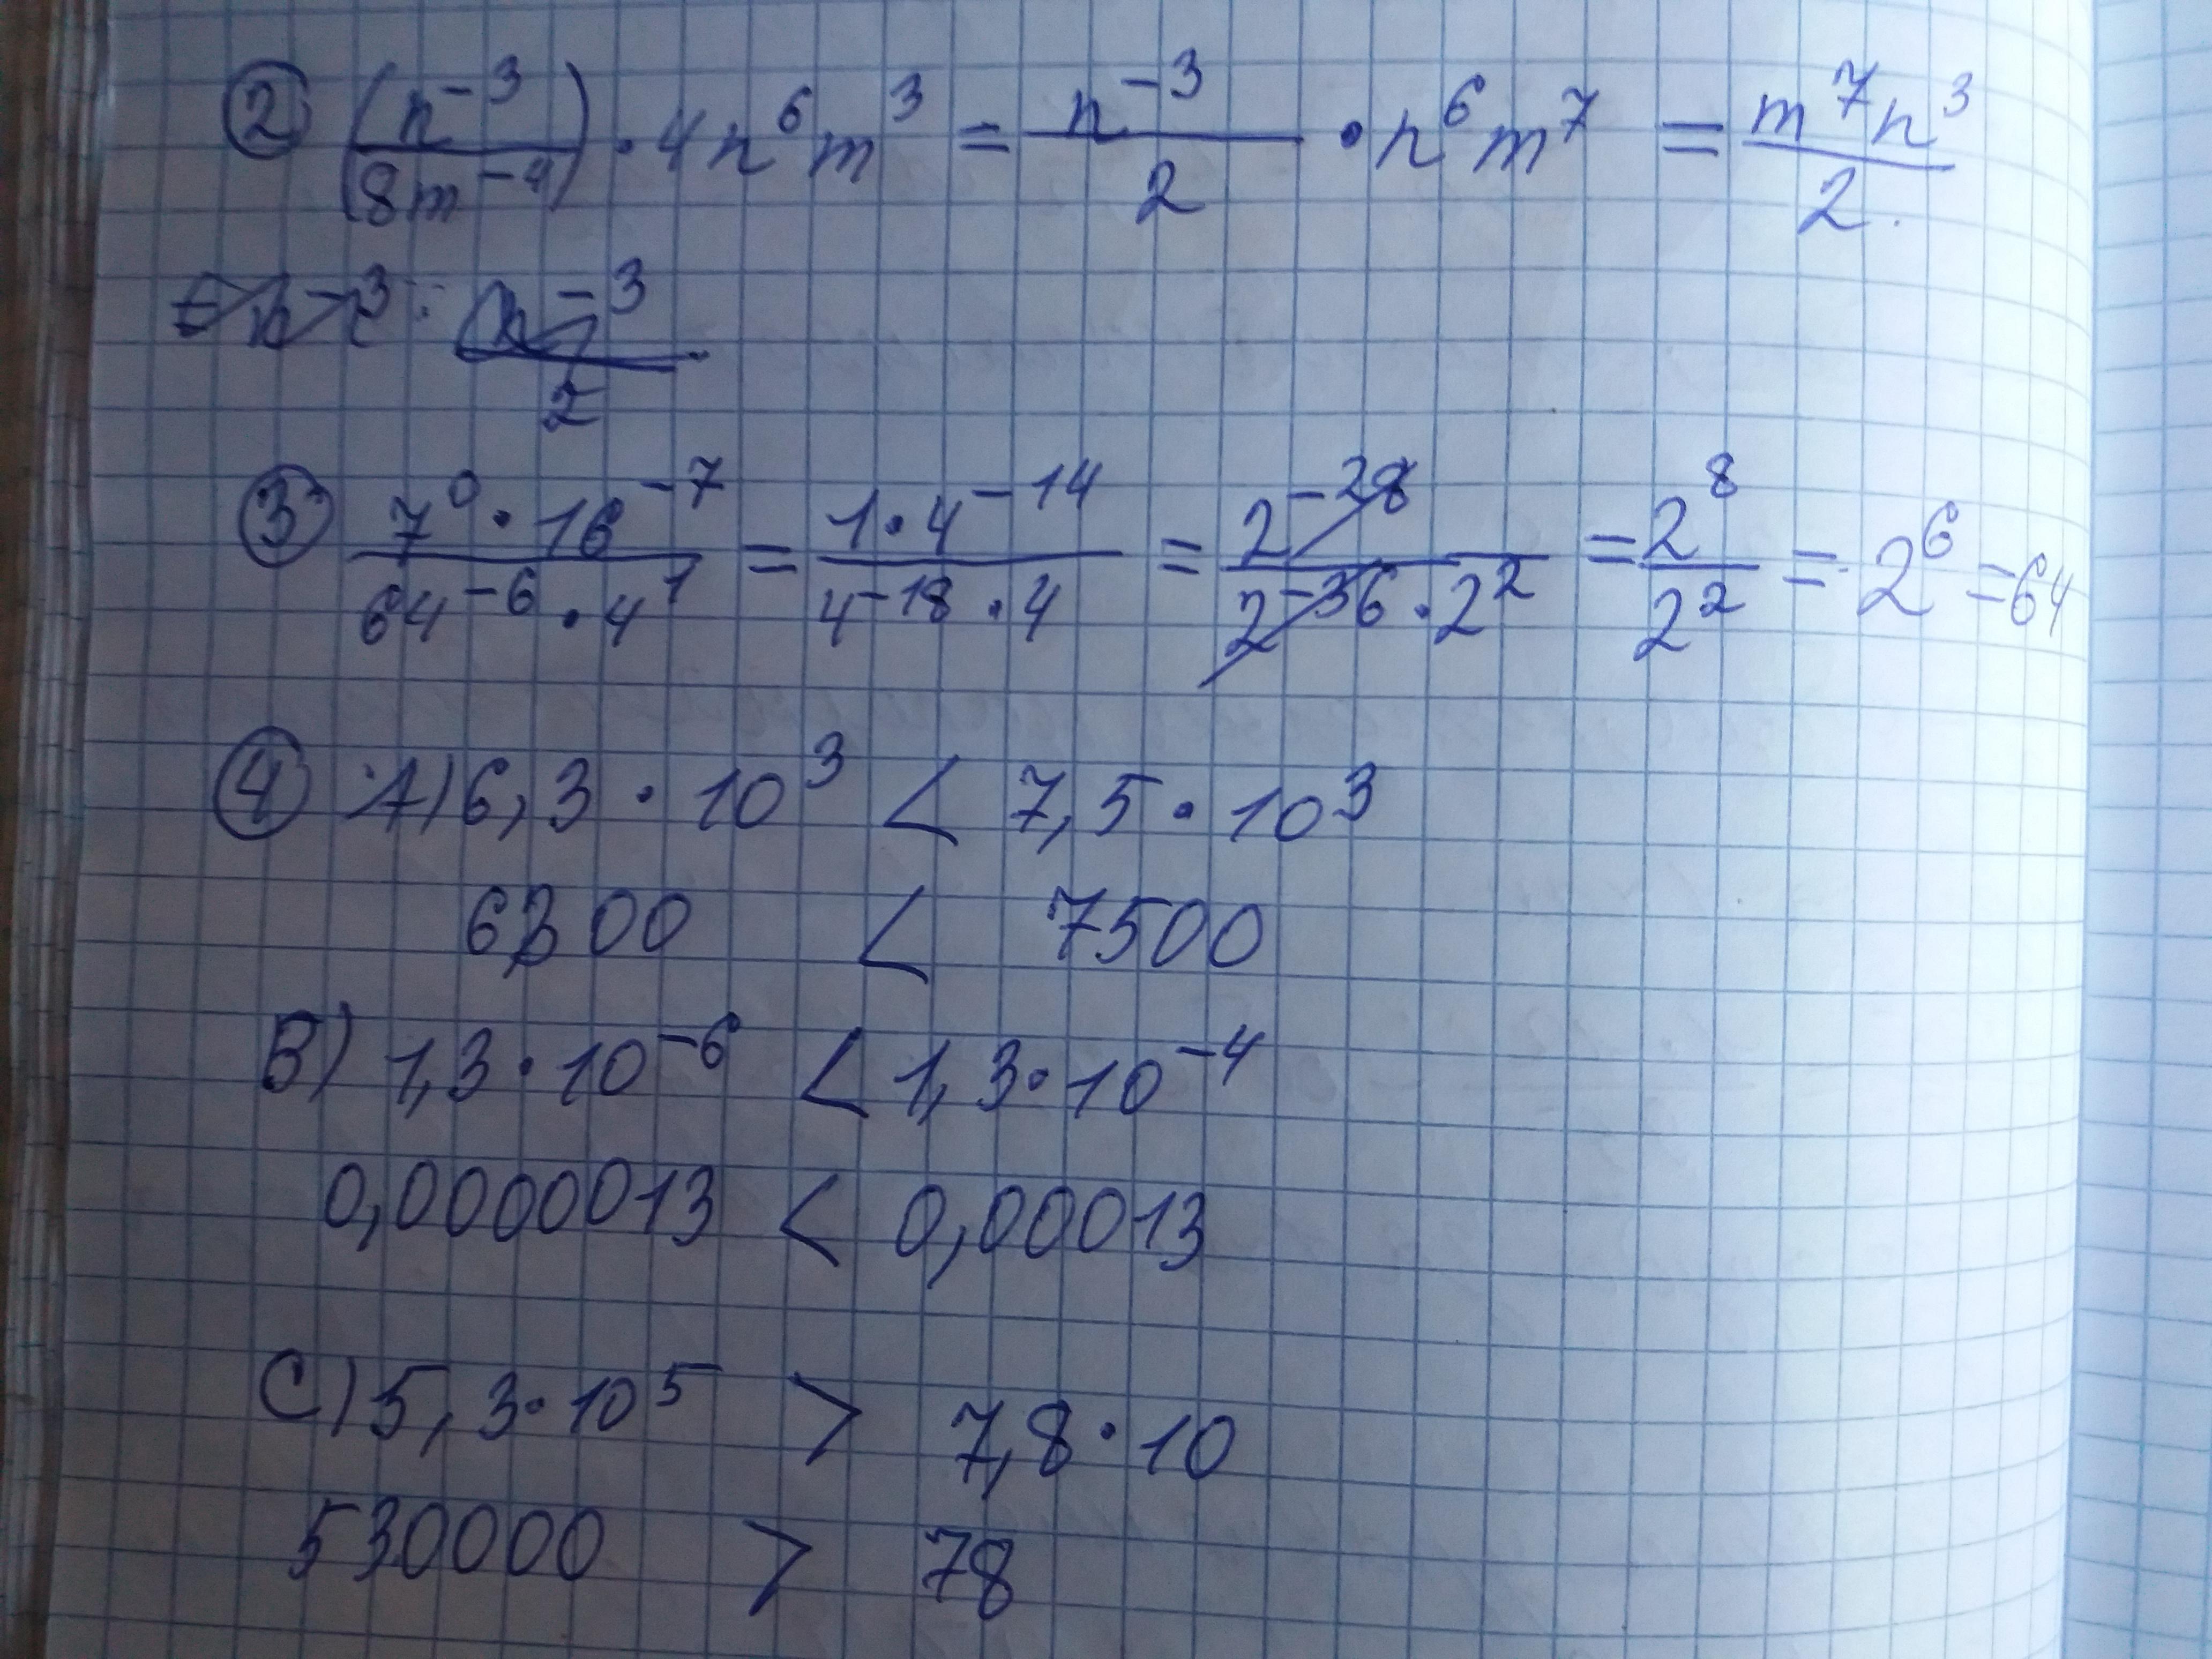 ② (n⁻³/8m⁻⁴) · 4n⁶m³ = n⁻³/2 · n⁶m⁷ = m⁷n³/2.
③ 7⁰·16⁻⁷/64⁻⁶·4¹ = 1·4⁻¹⁴/4⁻¹⁸·4 = 2⁻²⁸/2⁻³⁶·2² = 2⁸/2² = 2⁶ = 64
④ A) 6,3 · 10³ < 7,5 · 10³
6300 < 7500
B) 1,3 · 10⁻⁶ < 1,3 · 10⁻⁴
0,0000013 < 0,00013
C) 5,3 · 10⁵ > 7,8 · 10
530000 > 78